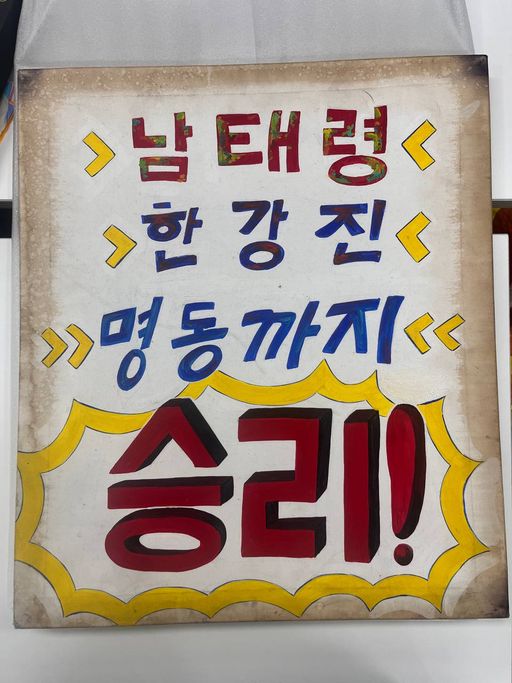 남태령
한강진
명동까지
승리!